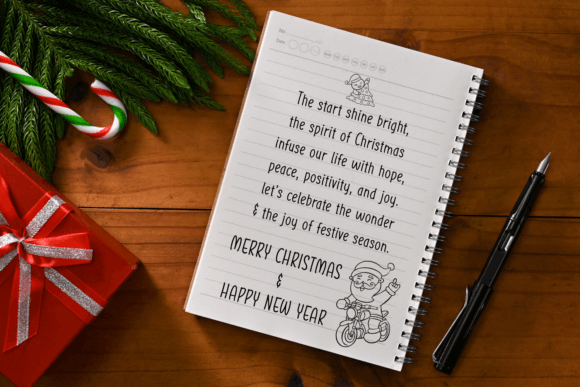 No.
Date
The start shine bright,
the spirit of Christmas
infuse our life with hope,
peace, positivity, and joy.
let's celebrate the wonder
& the joy of festive season.
MERRY CHRISTMAS
&
HAPPY NEW YEAR